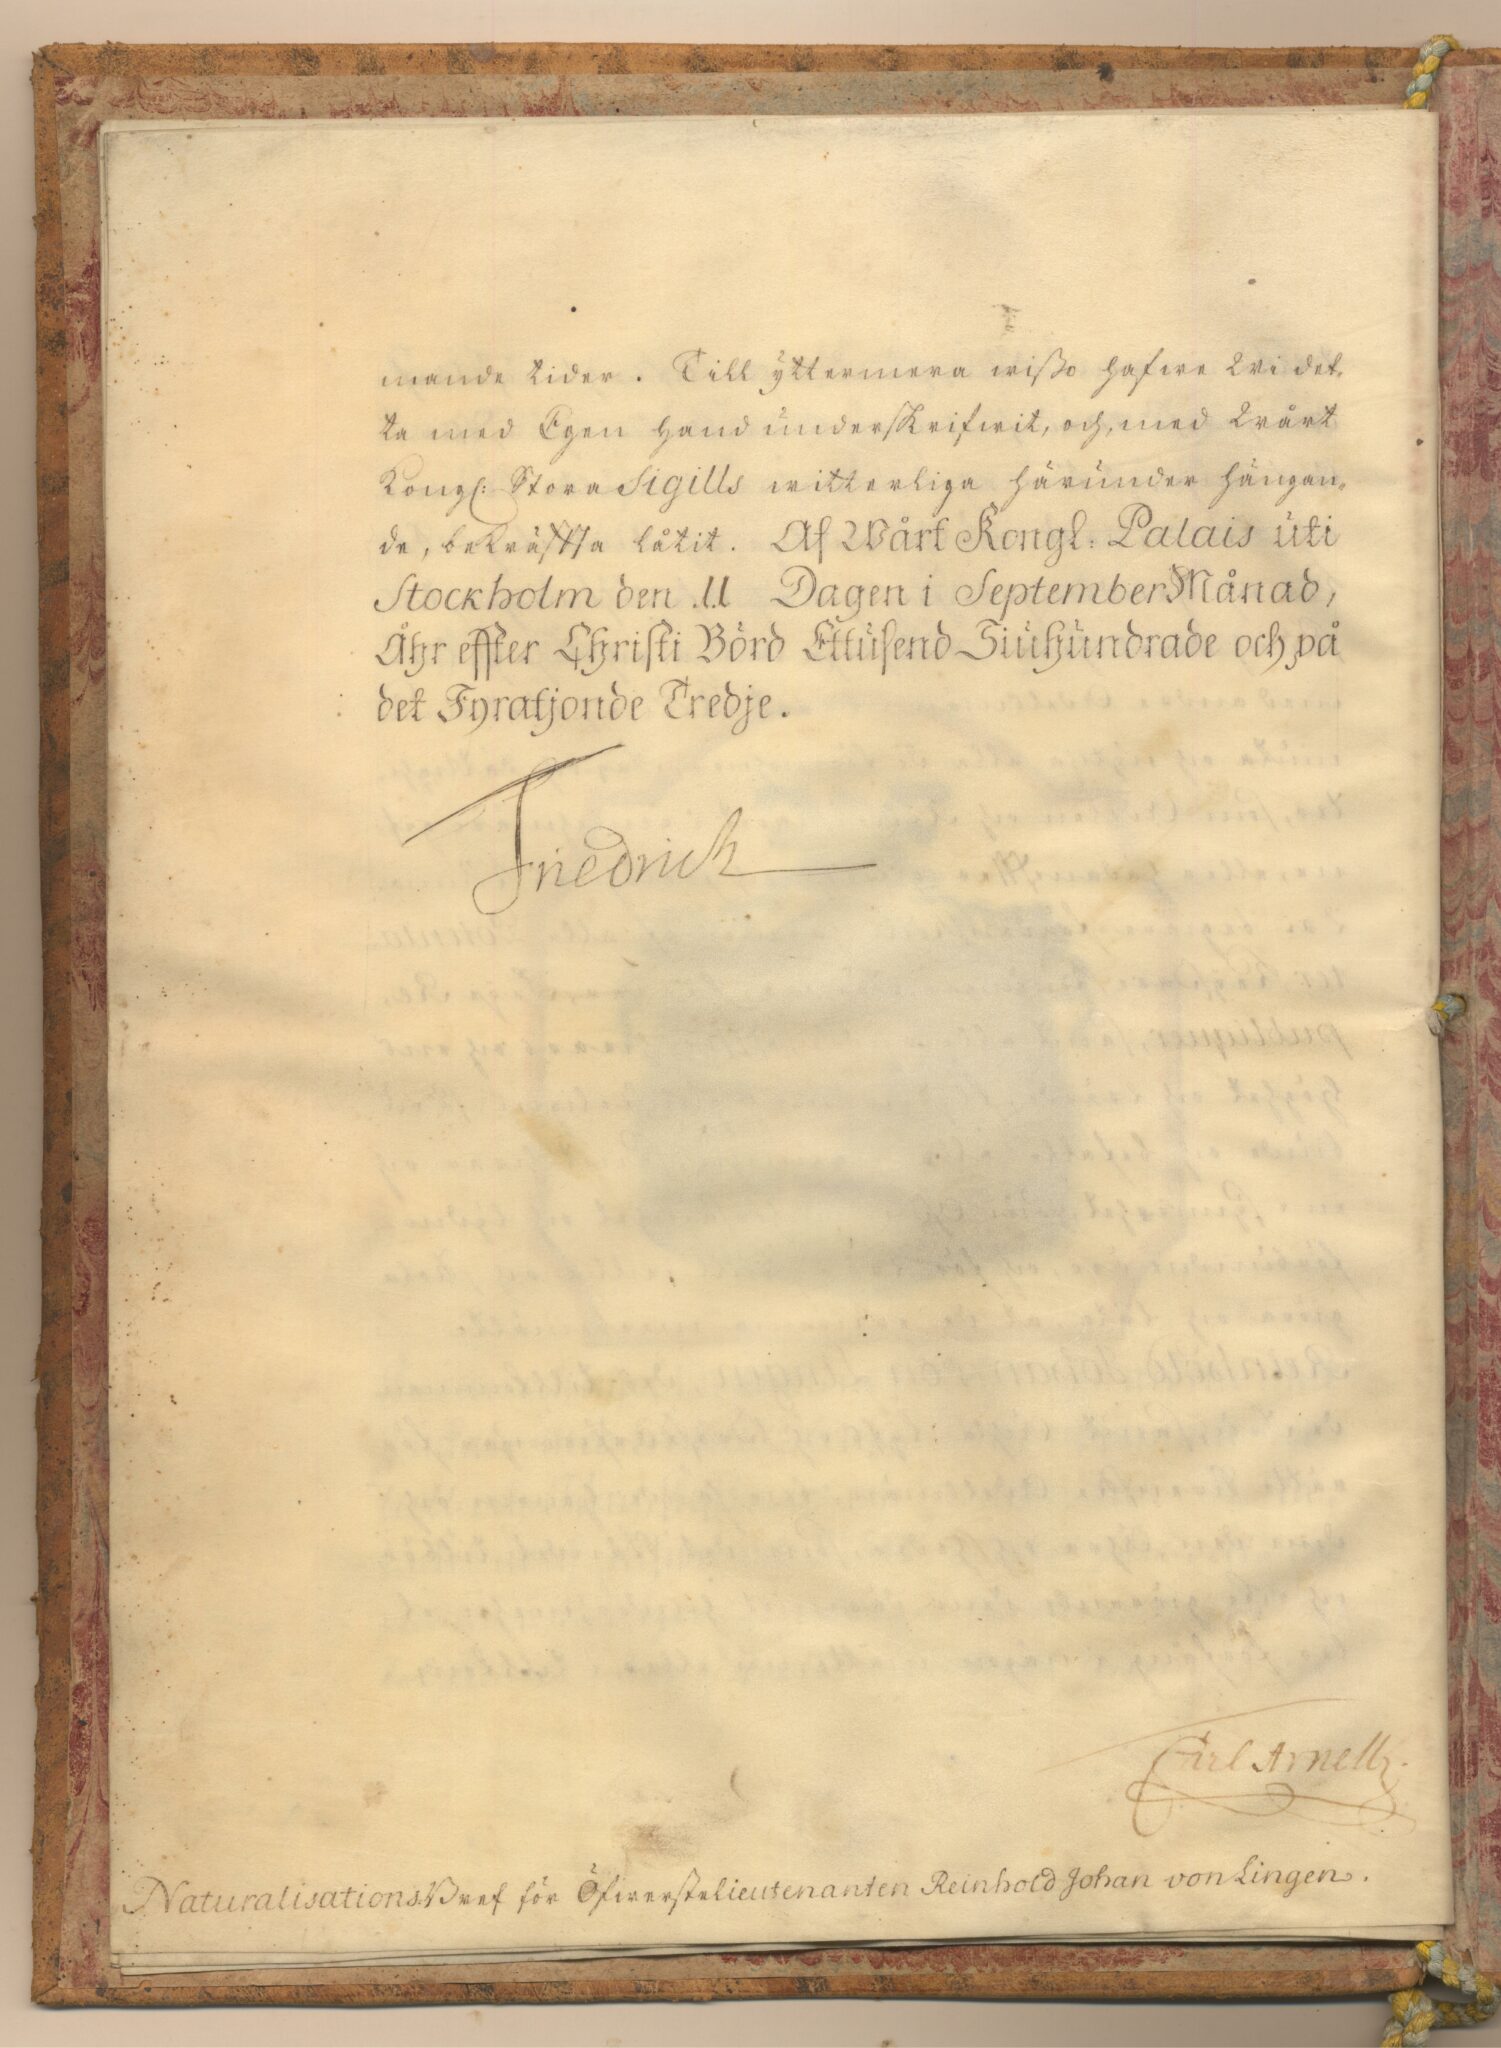 mande tider. Till yttermera wißo hafwe Wi det-
ta med Egen hand underskrifwit, och med Wårt
Kongl: Stora Sigills witterliga härunder hängan-
de, bekräffta låtit. Af Wårt Kongl: Palais uti
Stockholm den 11 Dagen i September Månad,
Åhr effter Christi Börd Ettusend Siuhundrade och på
det Fyratijonde Tredje.
Friedrich
Carl Arnell
Naturalisations Bref för Öfwerstelieutenanten Reinhold Johan von Lingen.